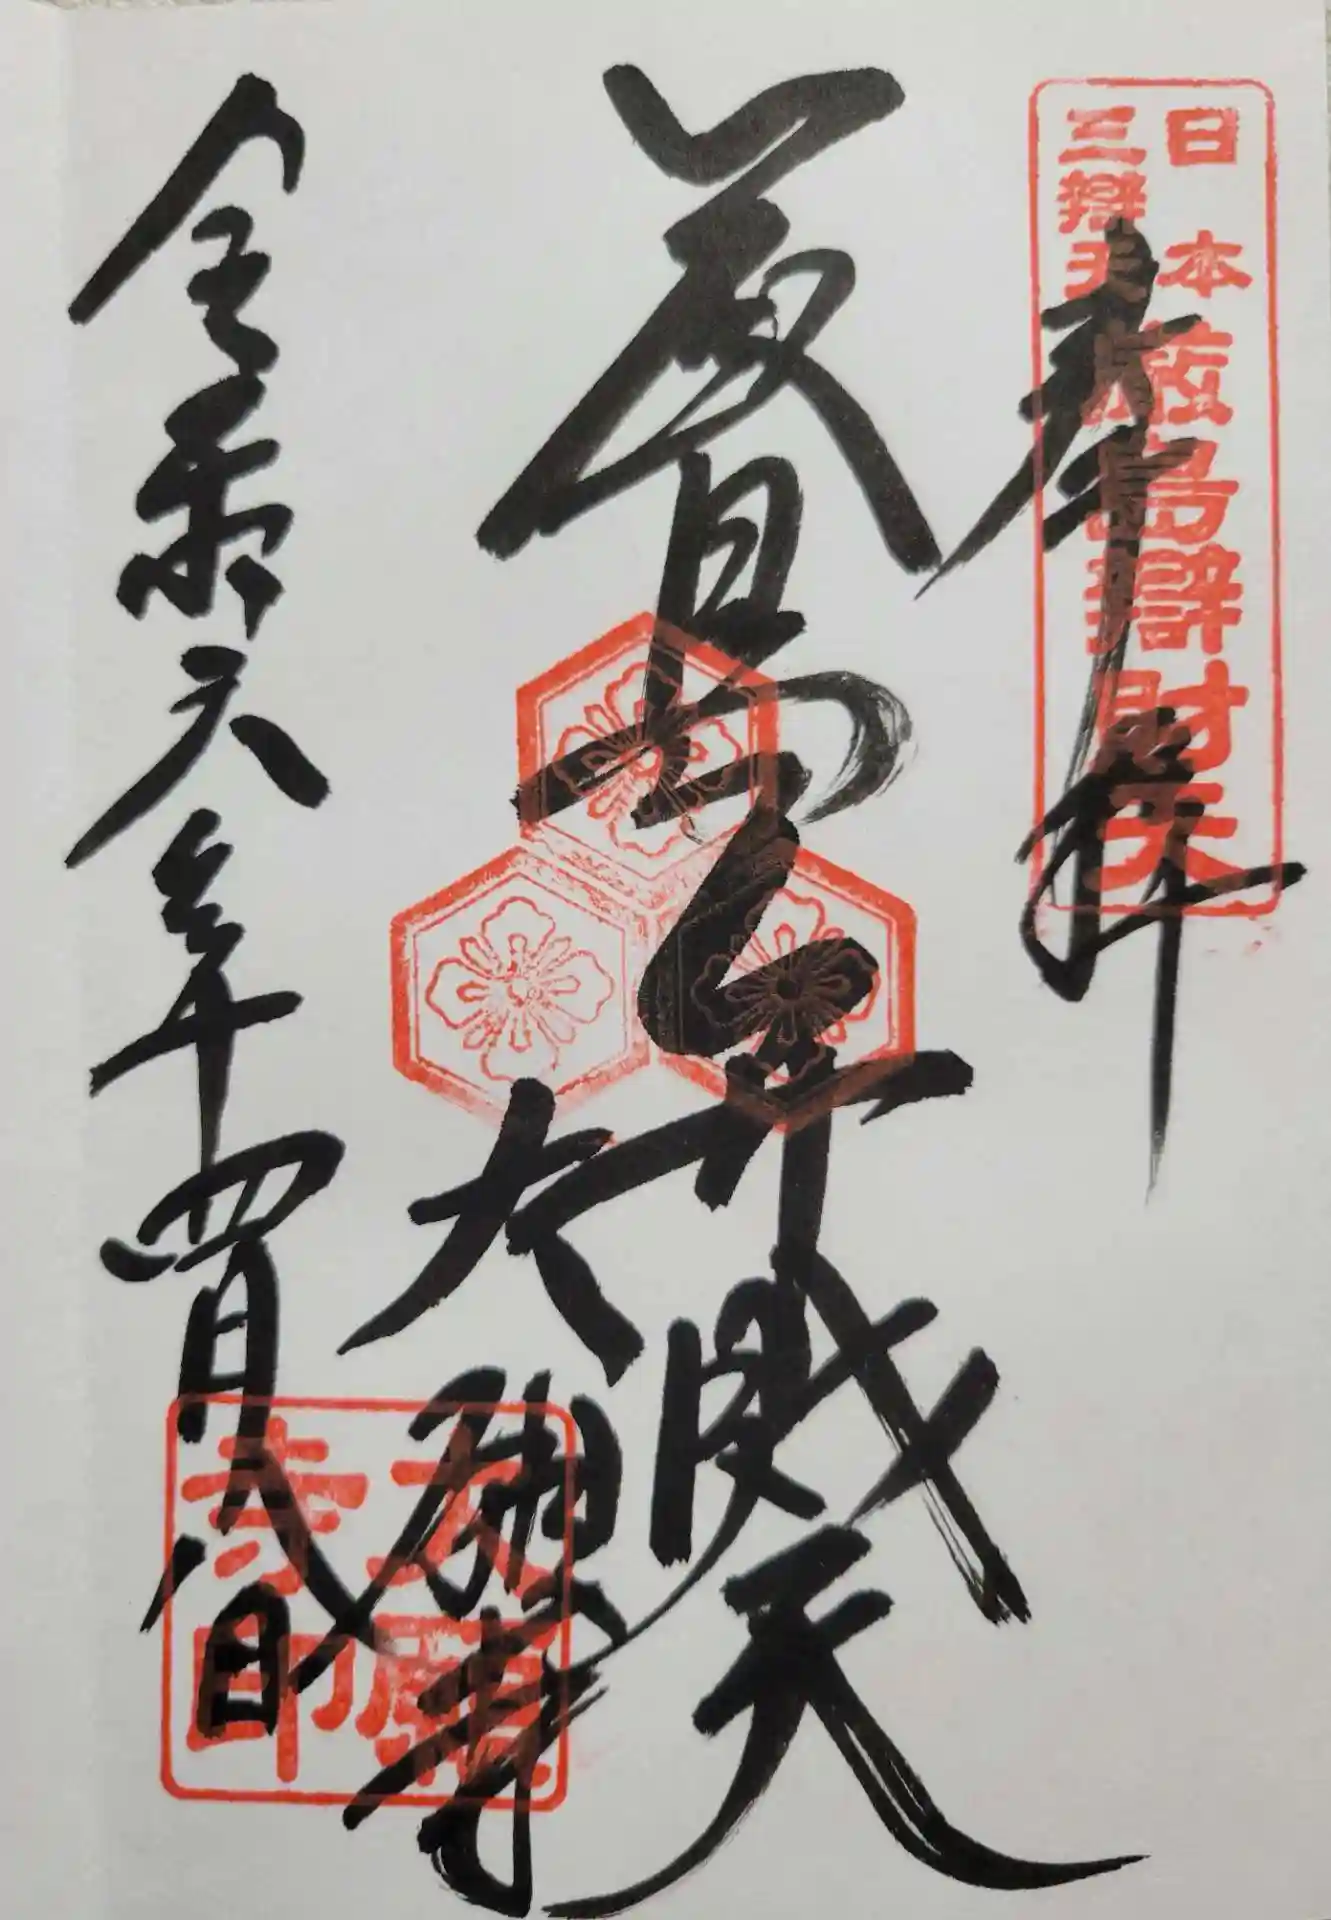 日本
三辯天
厳島辯財天
奉拝
厳島弁財天
大願寺
令和六年四月八日
大願
寺印